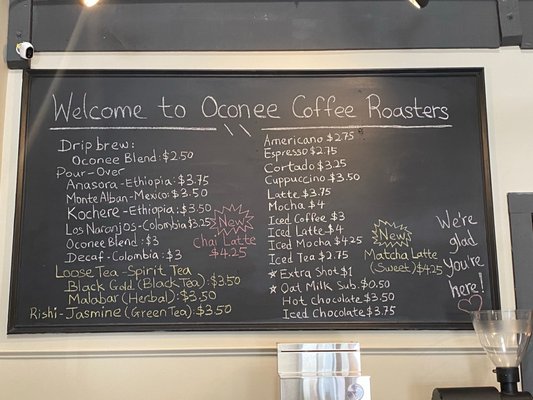 Welcome to Oconee Coffee Roasters
Drip brew:
Oconee Blend: $2.50
Pour-Over
Anasora-Ethiopia: $3.75
Monte Alban-Mexico: $3.50
Kochere-Ethiopia: $3.50
Los Naranjos-Colombia $3.25
Oconee Blend: $3
Decaf-Colombia: $3
New
Chai Latte
$4.25
Loose Tea-Spirit Tea
Black Gold (Black Tea): $3.50
Malabar (Herbal): $3.50
Rishi-Jasmine (Green Tea): $3.50
Americano $2.75
Espresso $2.75
Cortado $3.25
Cappuccino $3.50
Latte $3.75
Mocha $4
Iced Coffee $3
Iced Latte $4
Iced Mocha $4.25
Iced Tea $2.75
☆ Extra Shot $1
☆ Oat Milk Sub. $0.50
Hot chocolate $3.50
Iced Chocolate $3.75
New
Matcha Latte
(Sweet) $4.25
We're
glad
you're
here!